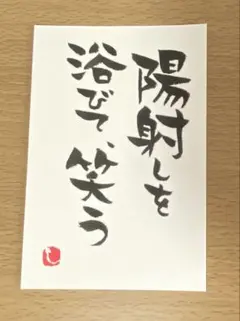 陽射しを
浴びて、笑う